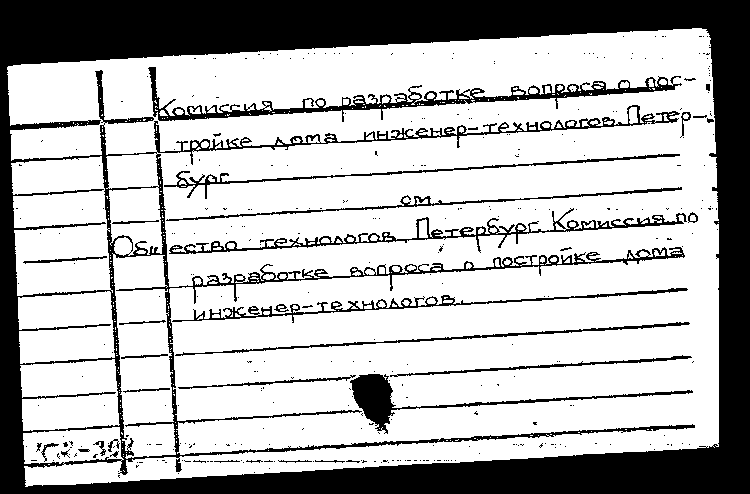 Комиссия по разработке вопроса о пос-
тройке дома инженер-технологов. Петер-
бург
см.
Общество технологов. Петербург. Комиссия по
разработке вопроса о постройке дома
инженер-технологов.